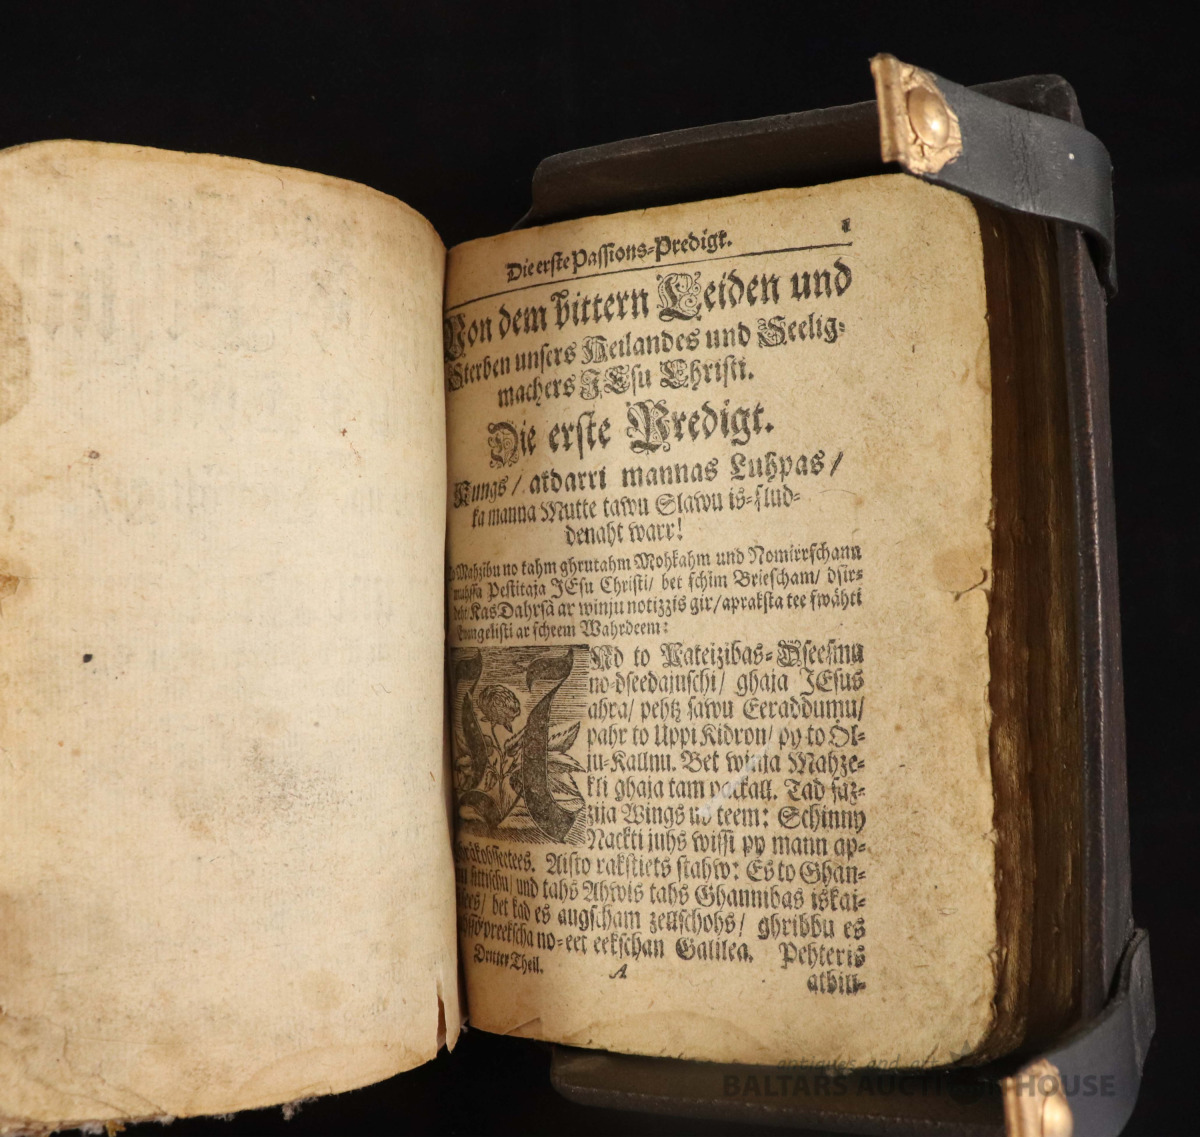 Die erste Passions-Predigt. 1
Von dem bittern Leiden und
Sterben unsers Heilandes und Seelig-
machers JEsu Christi.
Die erste Predigt.
Kungs / atdarri mannas Luhpas /
ka manna Mutte tawu Slawu is-slud-
denaht warr!
Mahzibu no tahm ghrutahm Mohkahm und Nomirrschann
Pestitaja JEsu Christi / bet schim Briescham / dsir-
Kas Dahrsâ ar winju notizzis gir / apraksta tee swähti
Ewangelisti ar scheem Wahrdeem:
UNd to Pateizibas-Dseesmu
no-dseedajuschi / ghaja JEsus
ahra / pehtz sawu Eeraddumu /
pahr to Uppi Kidron / py to Öl-
ju-Kallnu. Bet winja Mahze-
kli ghaja tam packall. Tad sazz-
zija Wings us teem: Schinny
Nackti juhs wissi py mann ap-
ghräkobseetees. Aisto rakstiets stahw: Es to Ghan-
nu sittischu / und tahs Ahwis tahs Ghannibas iskai-
/ bet kad es augscham zellschohs / ghribbu es
preekscha no-eet eekschan Galilea. Pehteris
Dritter Theil. A
atbill-
antiques and art
BALTARS AUCTION HOUSE